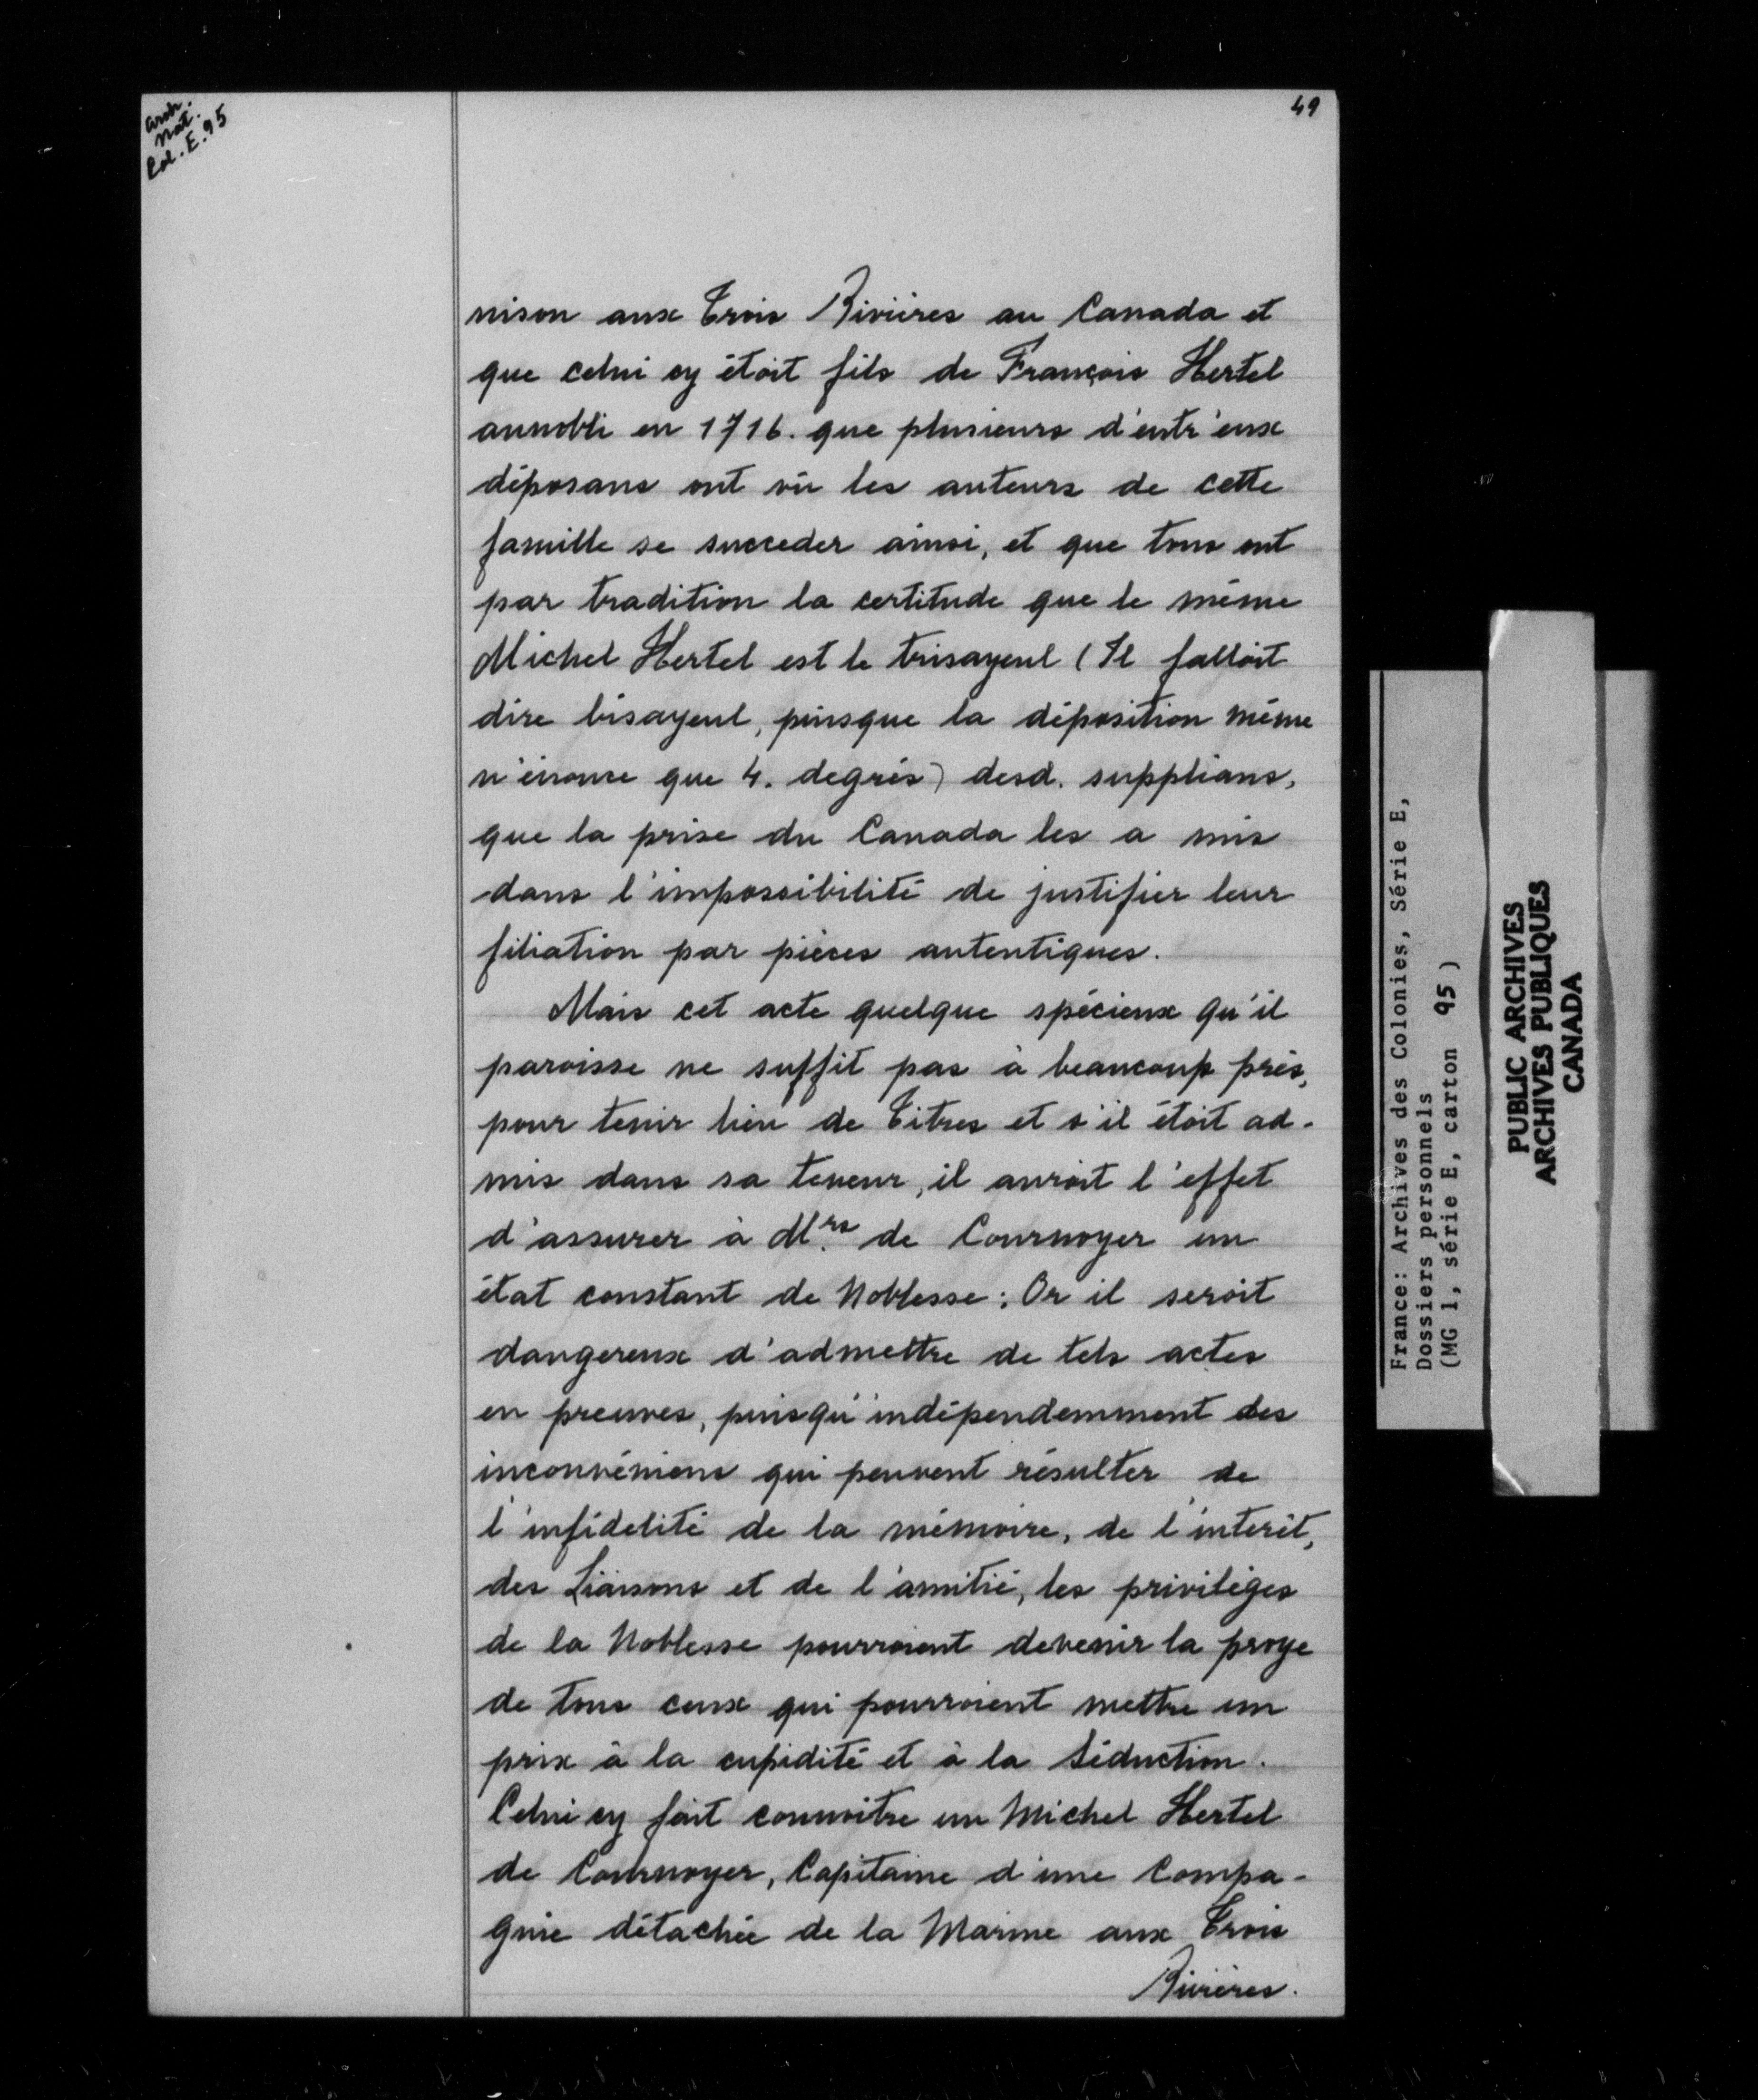 Arch.
Nat.
Col. E. 95
49
nison aux Trois Rivières au Canada et
que celui cy étoit fils de François Hertel
annobli en 1716. que plusieurs d'entr'eux
déposans ont vû les auteurs de cette
famille se succeder ainsi, et que tous ont
par tradition la certitude que le même
Michel Hertel est le trisayeul (Il falloit
dire bisayeul, puisque la déposition même
n'énonce que 4. degrés) desd. supplians,
que la prise du Canada les a mis
dans l'impossibilité de justifier leur
filiation par pièces autentiques.
Mais cet acte quelque spécieux qu'il
paroisse ne suffit pas à beaucoup près,
pour tenir lieu de Titres et s'il étoit ad-
mis dans sa teneur, il auroit l'effet
d'assurer à Mrs. de Cournoyer un
état constant de Noblesse : Or il seroit
dangereux d'admettre de tels actes
en preuves, puisqu'indépendemment des
inconvéniens qui peuvent résulter de
l'infidelité de la mémoire, de l'interêt,
des Liaisons et de l'amitié, les privilèges
de la Noblesse pourroient devenir la proye
de tous ceux qui pourroient mettre un
prix à la cupidité et à la Séduction.
Celui cy fait connoitre un Michel Hertel
de Cournoyer, Capitaine d'une Compa-
gnie détachée de la Marine aux Trois
Rivières.
France: Archives des Colonies, Série E,
Dossiers personnels
(MG 1, série E, carton 95)
PUBLIC ARCHIVES
ARCHIVES PUBLIQUES
CANADA